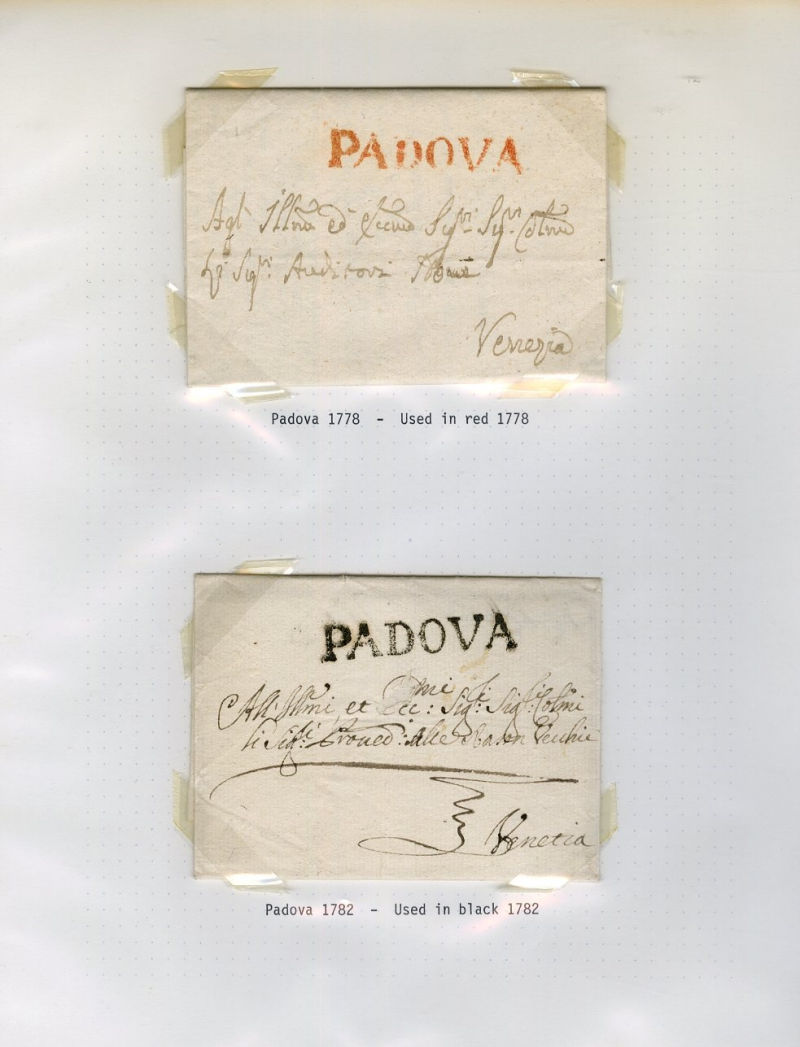 PADOVA
Agl' Illmi ed Eccmi Sigri Sigri
Sigri Auditori
Venezia
Padova 1778 - Used in red 1778
PADOVA
All' Illmi et Ecc:mi Sig:i Sig:i Colmi
li Sig:i Proved:i alle Rason Vecchie
Venetia
Padova 1782 - Used in black 1782